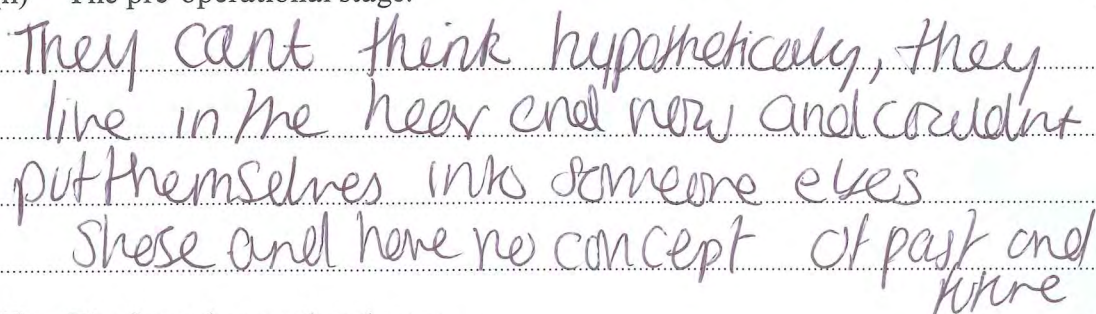 The pre-operational stage.
They cant think hypothetically, they
live in the hear and now and couldnt
put themselves into someone elses
shose and have no concept of past and
future